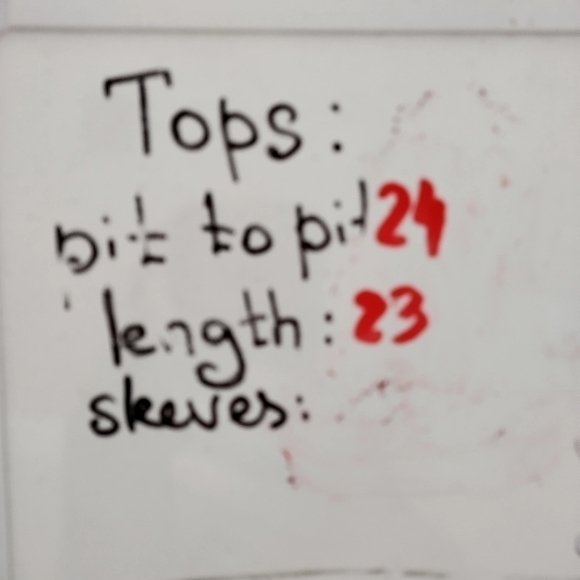 Tops:
pit to pit 24
length: 23
sleeves: